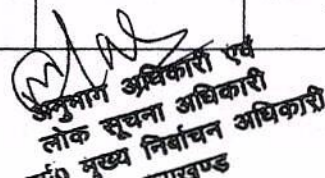 अनुभाग अधिकारी एवं
लोक सूचना अधिकारी
मुख्य निर्वाचन अधिकारी